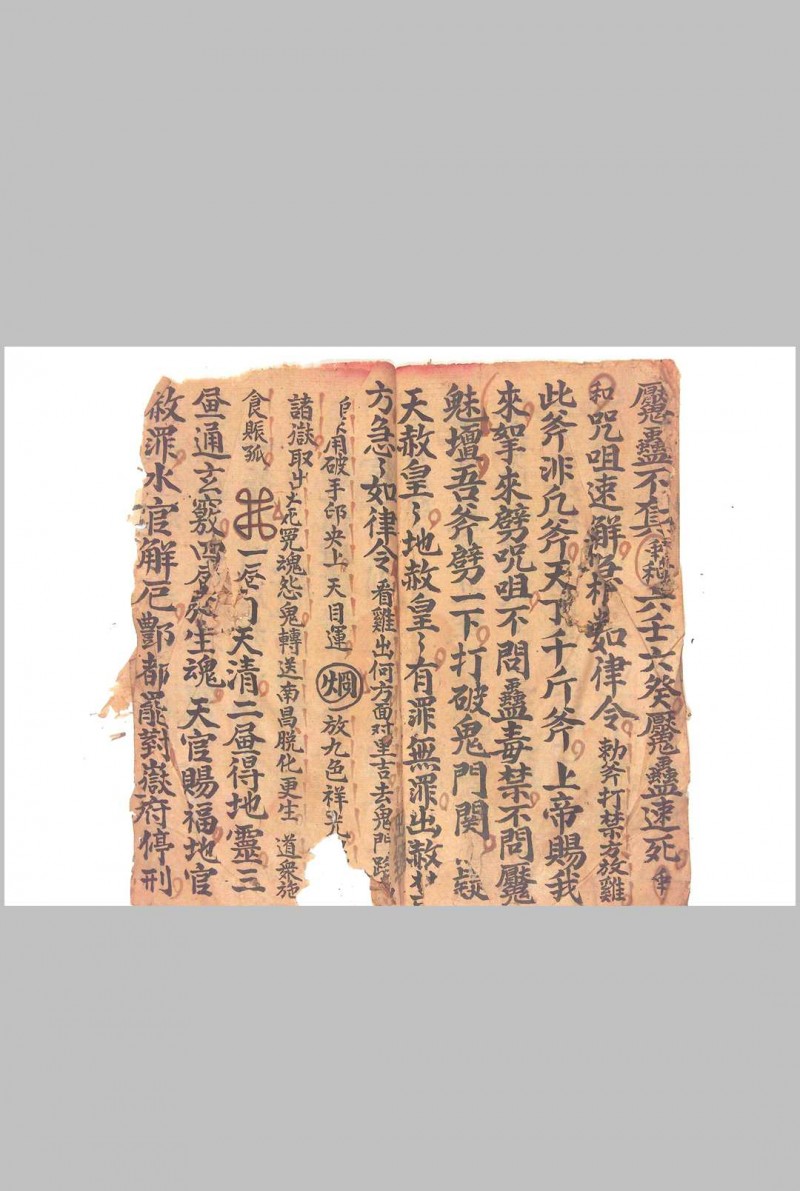 魘魅蠱不套爭和六壬六癸魘蠱速死
和咒咀速解急如律令勅斧打禁方放雞
此斧非凢斧天下千斤斧上帝賜我
來拏來劈咒咀不問蠱毒禁不問魘
魅壇吾斧劈一下打破鬼門関
天赦皇〻地赦皇〻有罪無罪出赦
方急〻如律令看雞出何方面对里吉去鬼門
用破手印央上天目運放九色祥光
諸獄取出冤魂怨鬼轉送南昌脱化更生道衆施
食賑孤一天清二届得地靈三
届通玄竅生魂天官賜福地官
赦罪水官解厄酆都罷對嶽府停刑